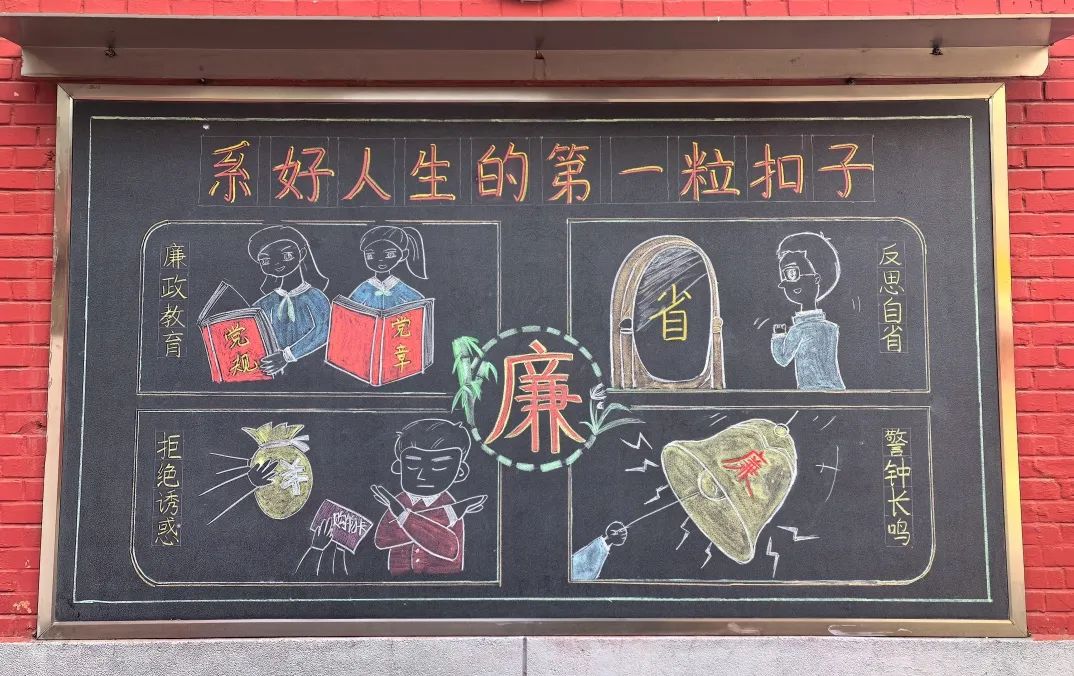 系好人生的第一粒扣子
廉政教育
党规
党章
省
反思自省
廉
拒绝诱惑
购物卡
廉
警钟长鸣